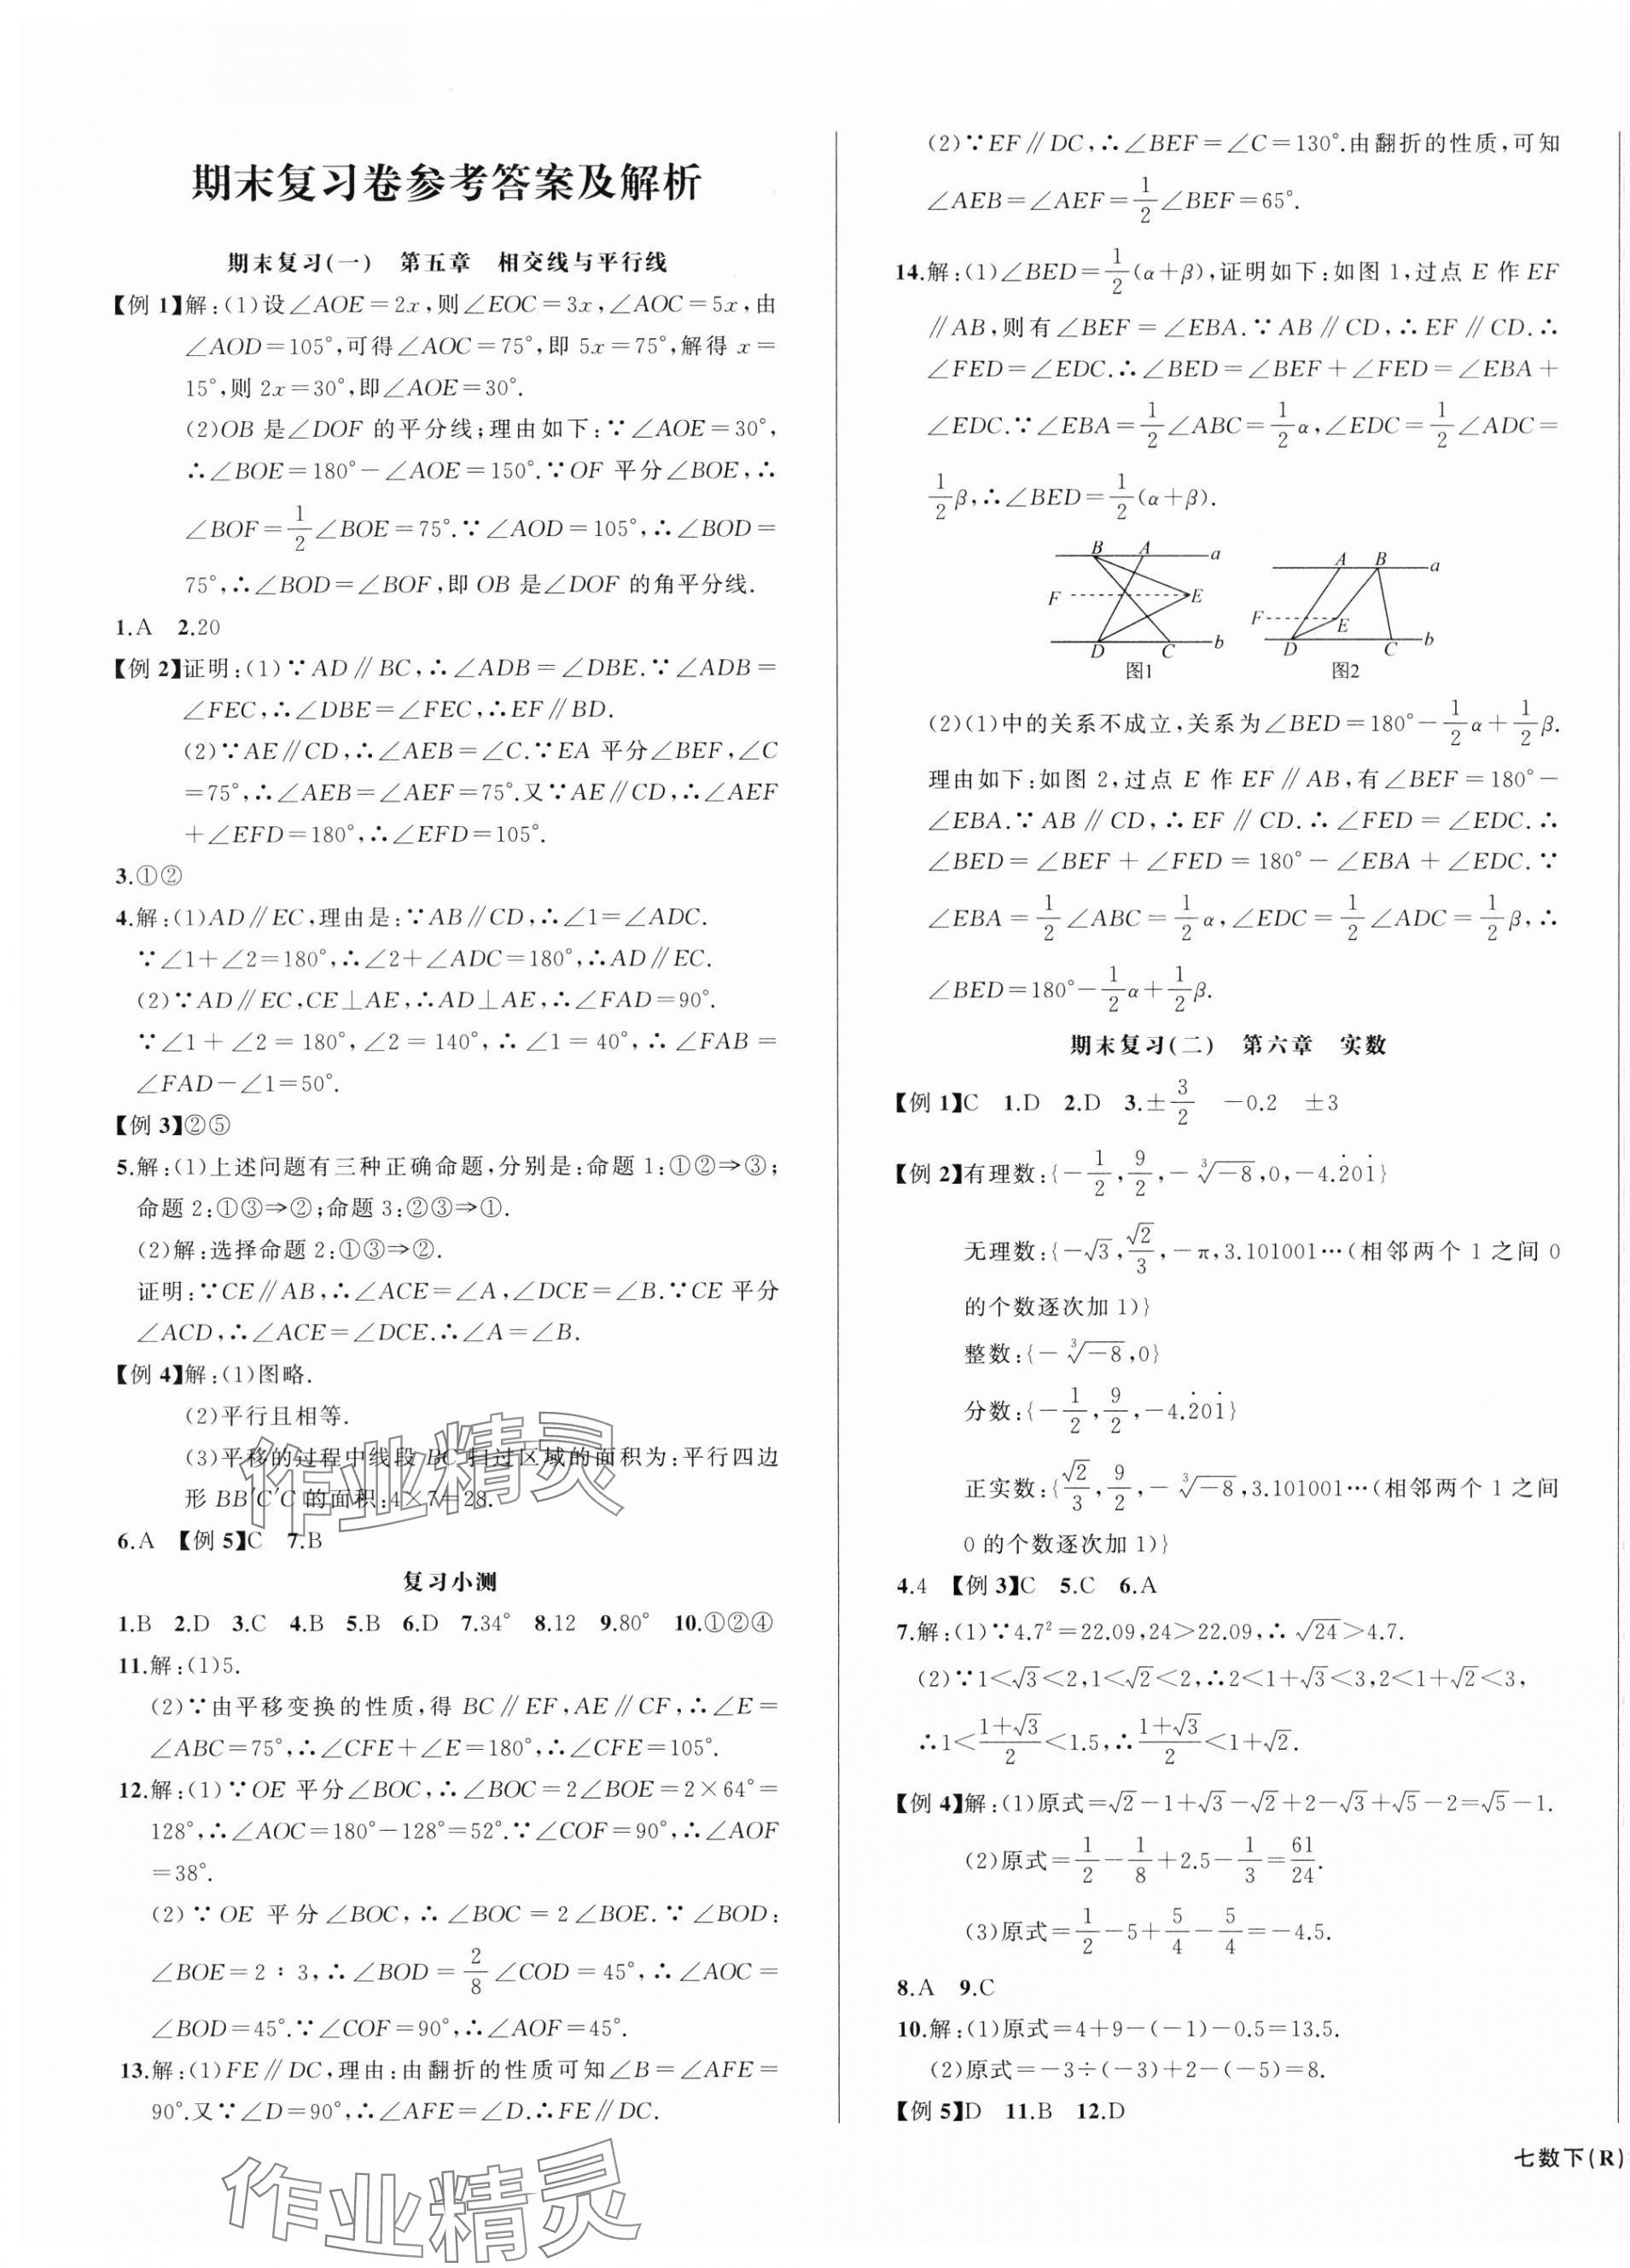 期末复习卷参考答案及解析
期末复习(一) 第五章 相交线与平行线
【例 1】解:(1)设∠AOE=2x,则∠EOC=3x,∠AOC=5x,由
∠AOD=105°,可得∠AOC=75°,即 5x=75°,解得 x=
15°,则 2x=30°,即∠AOE=30°.
(2)OB 是∠DOF 的平分线;理由如下:∵∠AOE=30°,
∴∠BOE=180°-∠AOE=150°.∵OF 平分∠BOE,∴
∠BOF=1/2∠BOE=75°.∵∠AOD=105°,∴∠BOD=
75°,∴∠BOD=∠BOF,即 OB 是∠DOF 的角平分线.
1.A 2.20
【例 2】证明:(1)∵AD∥BC,∴∠ADB=∠DBE.∵∠ADB=
∠FEC,∴∠DBE=∠FEC,∴EF∥BD.
(2)∵AE∥CD,∴∠AEB=∠C.∵EA 平分∠BEF,∠C
=75°,∴∠AEB=∠AEF=75°.又∵AE∥CD,∴∠AEF
+∠EFD=180°,∴∠EFD=105°.
3.①②
4.解:(1)AD∥EC,理由是:∵AB∥CD,∴∠1=∠ADC.
∵∠1+∠2=180°,∴∠2+∠ADC=180°,∴AD∥EC.
(2)∵AD∥EC,CE⊥AE,∴AD⊥AE,∴∠FAD=90°.
∵∠1+∠2=180°,∠2=140°,∴∠1=40°,∴∠FAB=
∠FAD-∠1=50°.
【例 3】②⑤
5.解:(1)上述问题有三种正确命题,分别是:命题 1:①②⇒③;
命题 2:①③⇒②;命题 3:②③⇒①.
(2)解:选择命题 2:①③⇒②.
证明:∵CE∥AB,∴∠ACE=∠A,∠DCE=∠B.∵CE 平分
∠ACD,∴∠ACE=∠DCE.∴∠A=∠B.
【例 4】解:(1)图略.
(2)平行且相等.
(3)平移的过程中线段 BC 扫过区域的面积为:平行四边
形 BB′C′C 的面积:4×7=28.
6.A 【例 5】C 7.B
复习小测
1.B 2.D 3.C 4.B 5.B 6.D 7.34° 8.12 9.80° 10.①②④
11.解:(1)5.
(2)∵由平移变换的性质,得 BC∥EF,AE∥CF,∴∠E=
∠ABC=75°,∴∠CFE+∠E=180°,∴∠CFE=105°.
12.解:(1)∵OE 平分∠BOC,∴∠BOC=2∠BOE=2×64°=
128°,∴∠AOC=180°-128°=52°.∵∠COF=90°,∴∠AOF
=38°.
(2)∵OE 平分∠BOC,∴∠BOC=2∠BOE.∵∠BOD:
∠BOE=2:3,∴∠BOD=2/8∠COD=45°,∴∠AOC=
∠BOD=45°.∵∠COF=90°,∴∠AOF=45°.
13.解:(1)FE∥DC,理由:由翻折的性质可知∠B=∠AFE=
90°.又∵∠D=90°,∴∠AFE=∠D.∴FE∥DC.
(2)∵EF∥DC,∴∠BEF=∠C=130°.由翻折的性质,可知
∠AEB=∠AEF=1/2∠BEF=65°.
14.解:(1)∠BED=1/2(α+β),证明如下:如图 1,过点 E 作 EF
∥AB,则有∠BEF=∠EBA.∵AB∥CD,∴EF∥CD.∴
∠FED=∠EDC.∴∠BED=∠BEF+∠FED=∠EBA+
∠EDC.∵∠EBA=1/2∠ABC=1/2α,∠EDC=1/2∠ADC=
1/2β,∴∠BED=1/2(α+β).
B A a
F E
D C b
图1
A B a
F E
D C b
图2
(2)(1)中的关系不成立,关系为∠BED=180°-1/2α+1/2β.
理由如下:如图 2,过点 E 作 EF∥AB,有∠BEF=180°-
∠EBA.∵AB∥CD,∴EF∥CD.∴∠FED=∠EDC.∴
∠BED=∠BEF+∠FED=180°-∠EBA+∠EDC.∵
∠EBA=1/2∠ABC=1/2α,∠EDC=1/2∠ADC=1/2β,∴
∠BED=180°-1/2α+1/2β.
期末复习(二) 第六章 实数
【例 1】C 1.D 2.D 3.±3/2 -0.2 ±3
【例 2】有理数:{-1/2,9/2,-∛-8,0,-4.2̇01̇}
无理数:{-√3,√2/3,-π,3.101001…(相邻两个 1 之间 0
的个数逐次加 1)}
整数:{-∛-8,0}
分数:{-1/2,9/2,-4.2̇01̇}
正实数:{√2/3,9/2,-∛-8,3.101001…(相邻两个 1 之间
0 的个数逐次加 1)}
4.4 【例 3】C 5.C 6.A
7.解:(1)∵4.7²=22.09,24>22.09,∴√24>4.7.
(2)∵1<√3<2,1<√2<2,∴2<1+√3<3,2<1+√2<3,
∴1<(1+√3)/2<1.5,∴(1+√3)/2<1+√2.
【例 4】解:(1)原式=√2-1+√3-√2+2-√3+√5-2=√5-1.
(2)原式=1/2-1/8+2.5-1/3=61/24.
(3)原式=1/2-5+5/4-5/4=-4.5.
8.A 9.C
10.解:(1)原式=4+9-(-1)-0.5=13.5.
(2)原式=-3÷(-3)+2-(-5)=8.
【例 5】D 11.B 12.D
七数下(R)
作业精灵
作业精灵